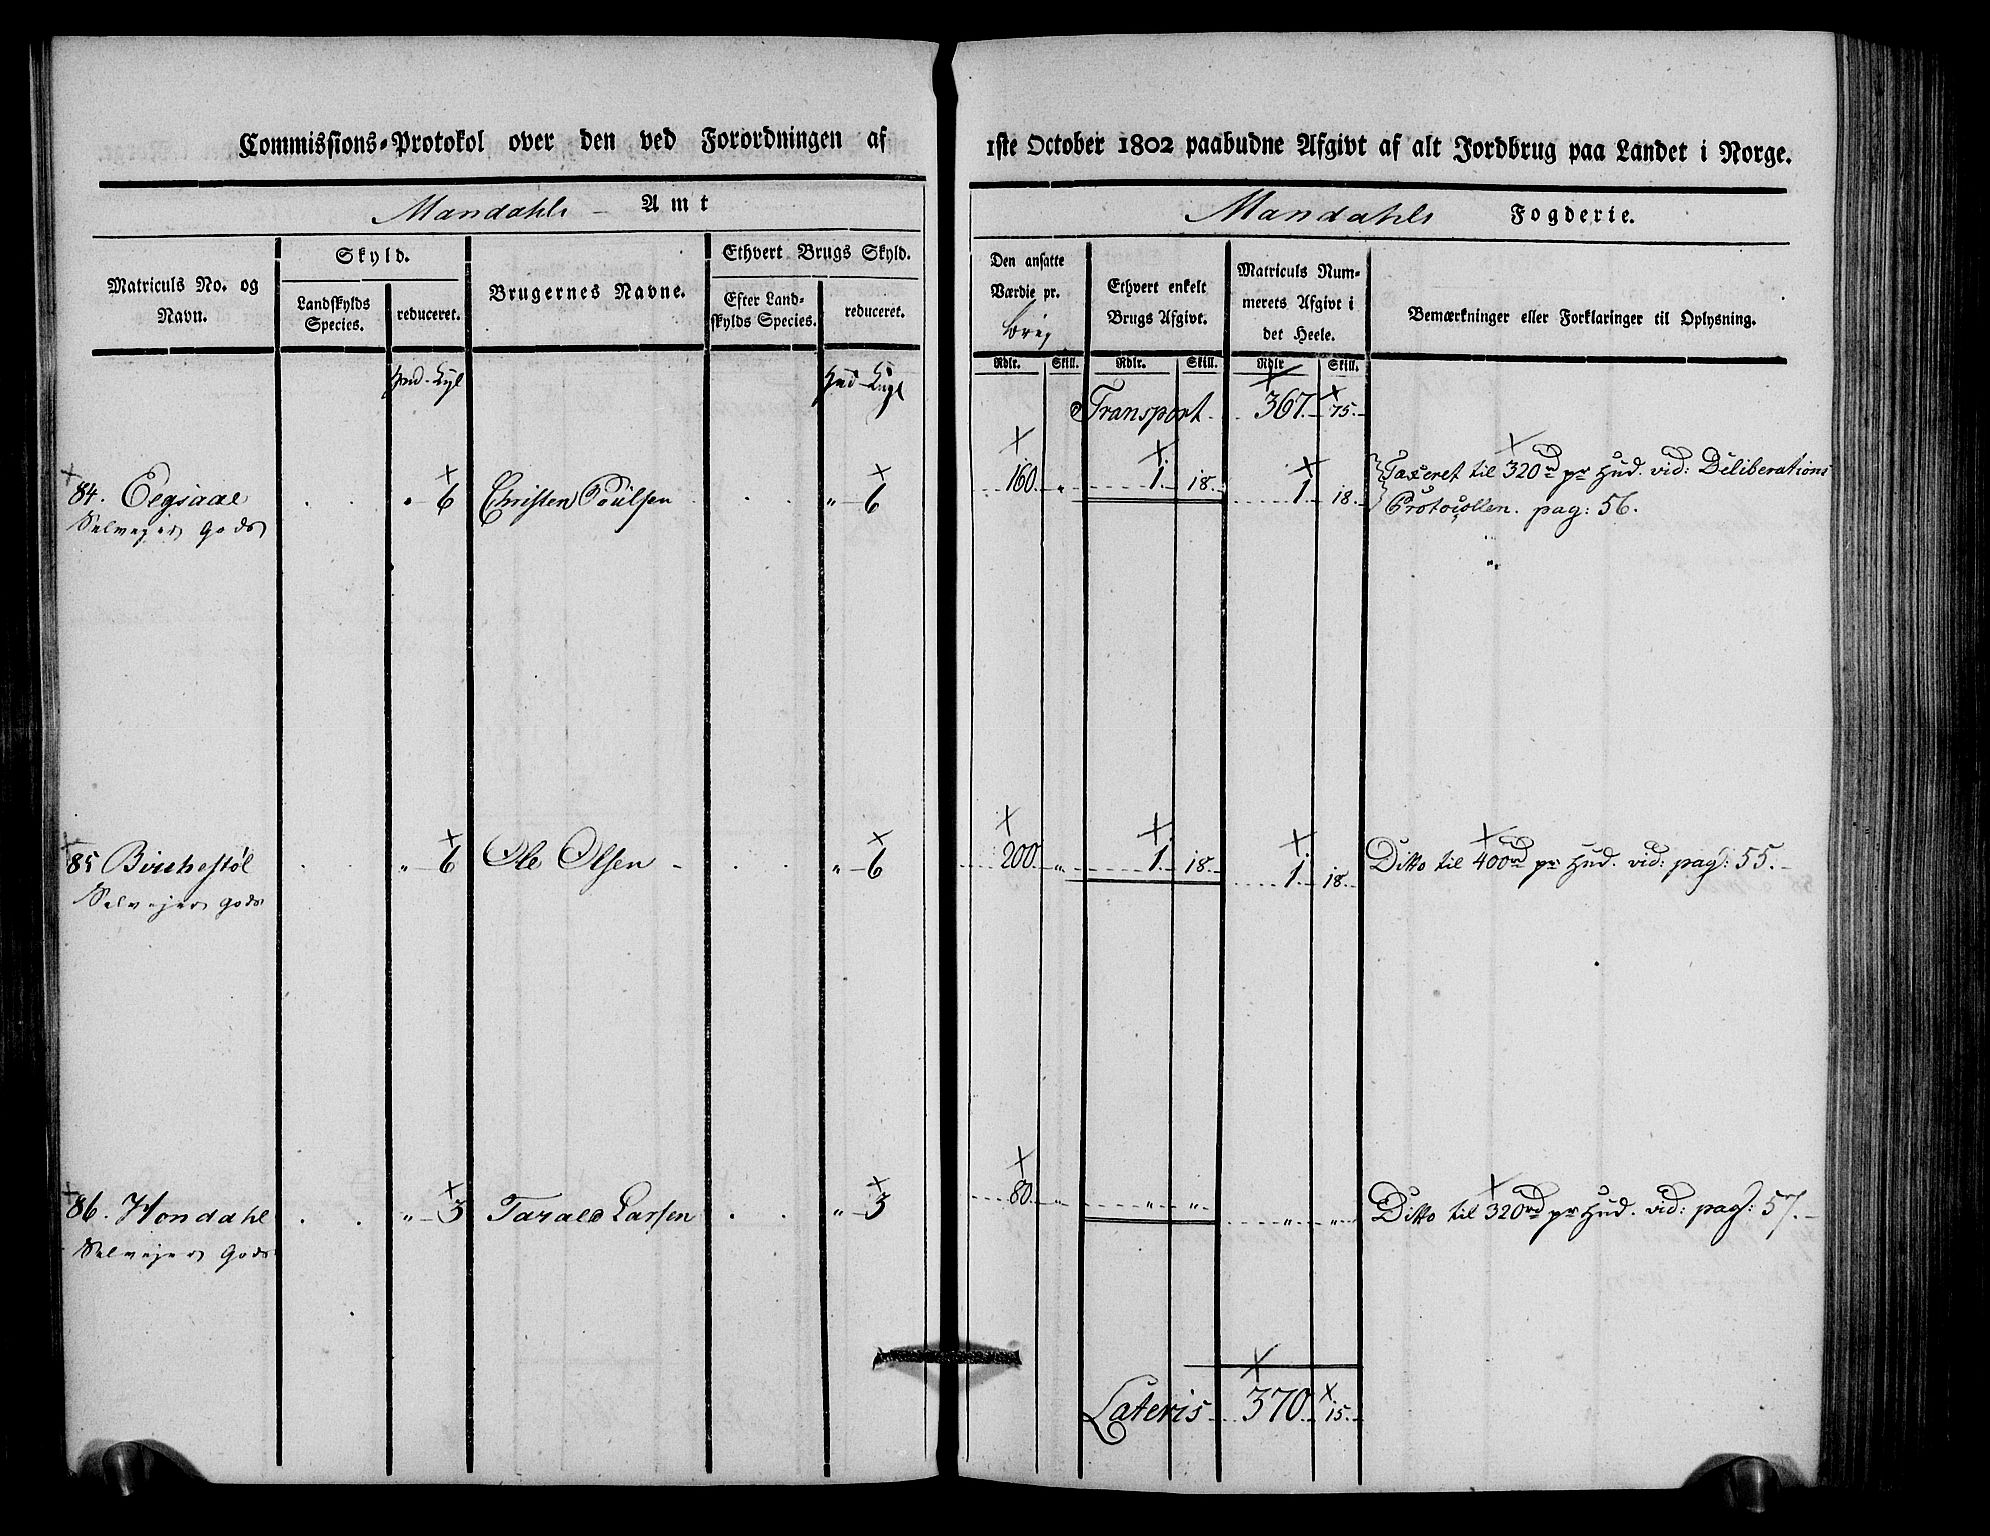 Commissions-Protokol over den ved Forordningen af 1ste October 1802 paabudne Afgivt af alt Jordbrug paa Landet i Norge.
Mandahls Amt
Mandahls Fogderie.
Matriculs No. og Navn.
Skyld.
Landskylds Species.
reduceret.
Brugernes Navne.
Ethvert Brugs Skyld.
Efter Landskylds Species.
reduceret.
Den ansatte Værdie pr.
Ethvert enkelt Brugs Afgivt.
Matriculs Nummerets Afgivt i det Heele.
Bemærkninger eller Forklaringer til Oplysning.
Rdlr. Skill. Rdlr. Skill. Rdlr Skill.
Transport. 367. 75.
84. Eegsaae " 6 Christen Poulsen " 6 160. " 1. 18. 1. 18. Taxeret til 320rd pr Hud. vid: Deliberations
Selvejer Gods Protocollen. pag: 56.
85 Birchestøl " 6 Ole Olsen " 6 200. " 1. 18. 1. 18. Ditto til 400rd pr Hud. vid: pag: 55.
Selvejer Gods
86. Hondahl " 3 Tarald Larsen " 3 80. " " " " " Ditto til 320rd pr Hud. vid: pag: 57.
Selvejer Gods
Lateris 370. 15.